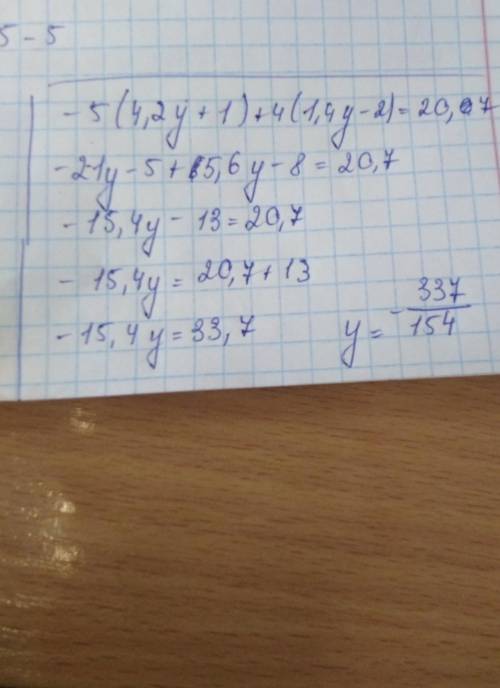 5 - 5
-5(4,2y + 1) + 4(1,4y - 2) = 20,7
-21y - 5 + 5,6y - 8 = 20,7
-15,4y - 13 = 20,7
-15,4y = 20,7 + 13
-15,4y = 33,7 y = -337/154